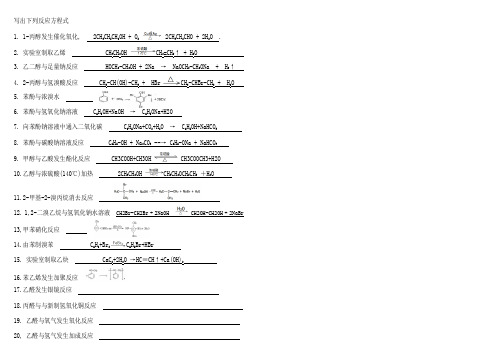 写出下列反应方程式
1. 1-丙醇发生催化氧化 2CH₃CH₂CH₂OH + O₂ 2CH₃CH₂CHO + 2H₂O
2. 实验室制取乙烯 CH₃CH₂OH CH₂=CH₂↑ + H₂O
3. 乙二醇与足量钠反应 HOCH₂-CH₂OH + 2Na → NaOCH₂-CH₂ONa + H₂↑
4. 2-丙醇与氢溴酸反应 CH₃-CH(OH)-CH₃ + HBr △ CH₃-CHBr-CH₃ + H₂O
5. 苯酚与浓溴水
6. 苯酚与氢氧化钠溶液 C₆H₅OH+NaOH → C₆H₅ONa+H2O
7. 向苯酚钠溶液中通入二氧化碳 C₆H₅ONa+CO₂+H₂O → C₆H₅OH+NaHCO₃
8. 苯酚与碳酸钠溶液反应 C₆H₅-OH + Na₂CO₃ --→ C₆H₅-ONa + NaHCO₃
9. 甲醇与乙酸发生酯化反应 CH3COOH+CH3OH CH3COOCH3+H2O
10.乙醇与浓硫酸(140℃)加热 2CH₃CH₂OH CH₃CH₂OCH₂CH₃ +H₂O
11.2-甲基-2-溴丙烷消去反应
12. 1,2-二溴乙烷与氢氧化钠水溶液 CH2Br-CH2Br + 2NaOH H₂O CH2OH-CH2OH + 2NaBr
13,甲苯硝化反应
14.由苯制溴苯 C₆H₆+Br₂ C₆H₅Br+HBr
15. 实验室制取乙炔 CaC₂+2H₂O →HC≡CH↑+Ca(OH)₂
16.苯乙烯发生加聚反应
17.乙醛发生银镜反应
18.丙醛与与新制氢氧化铜反应
19. 乙醛与氧气发生氧化反应
20, 乙醛与氢气发生加成反应